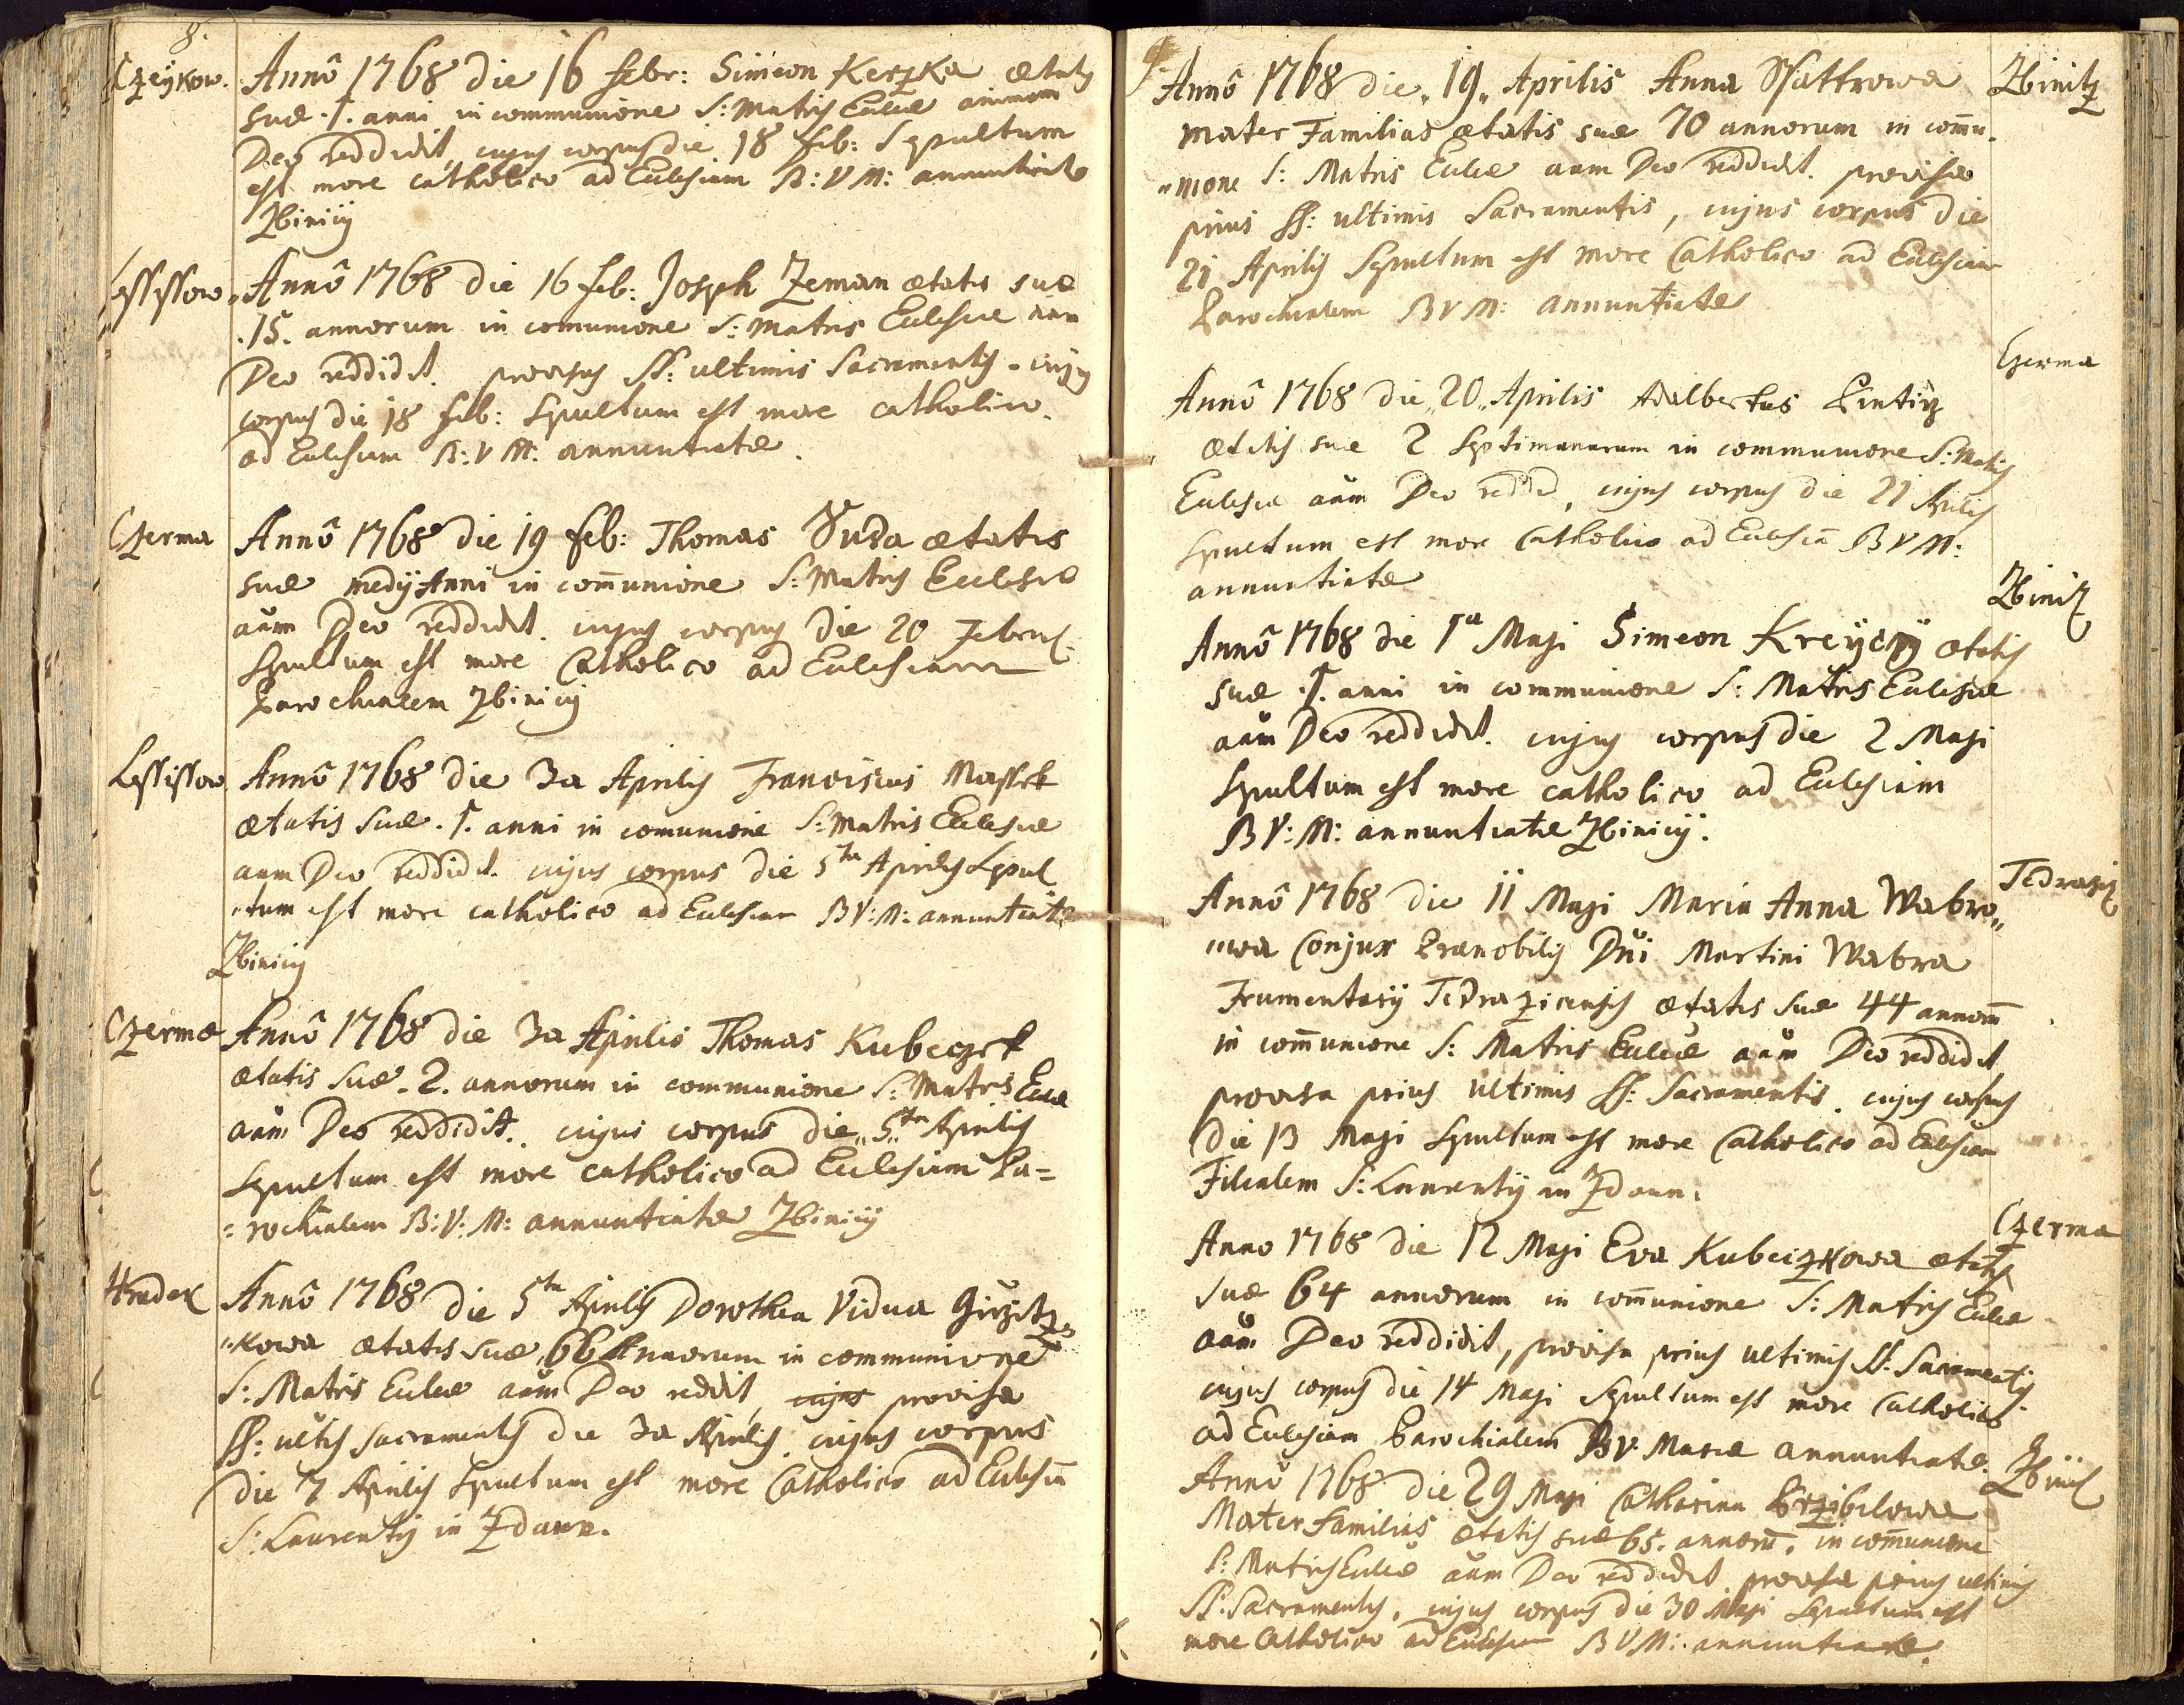 8.
Czeÿkow.
Annô 1768 die 16 febr: Simeon Kerzka ætatis
suæ .1. anni in communione S: Matris Eccl&ae animam
Deo reddidit, cujus corpus die 18 feb: Sepultum
est more catholico ad Ecclesiam B: V M: annuntiatæ
Zbinicij
Lessissow
Annô 1768 die 16 feb: Joseph Zeman ætatis suæ
.15. annorum in comunione S: Matris Ecclesiæ aam
Deo reddidit. provisus SS: ultimis Sacramentis. cujus
corpus die 18 feb: Sepultum est more catholico.
ad Ecclesiam B: V M: annuntiatæ.
Czerma
Annô 1768 die 19 feb: Thomas Duda ætatis
suæ medij Anni in com̄unione S: Matris Ecclesiæ
aam Deo reddidit. cujus corpus die 20 Febru:
Sepultum est more Catholico ad Ecclesiam
Parochialem Zbinicij
Lessissow
Annô 1768 die 3a Aprilis Franciscus Massek
ætatis suæ .1. anni in comunione S: Matris Ecclesiæ
aam Deo reddidit. cujus corpus die 5ta Aprilis Sepul
"tum est more catholico ad Ecclesiam B V: M: annuntiatæ
Zbinicij
Czermæ
Annô 1768 die 3a Aprilis Thomas Kubeczek
ætatis suæ .2. annorum in communione S: Matris Eccæ
aam Deo reddidit. cujus corpus die "5ta" Aprilis
Sepultum est more catholico ad Ecclesiam Pa=
=rochialem B: V: M: annuntiatæ Zbinicij
Hradek
Annô 1768 die 5ta Aprilis Dorothea Vidua
"kowa ætatis suæ, 66 Annorum in communione
S: Matris Eccleæ aam Deo reddit, cujus provisa
SS: ultis sacramentis die 3a Aprilis. cujus corpus
die 7 Aprilis Sepultum est more Catholico ad Ecclesiā
S: Laurentij in Zdaun.
9.
Zbinitz
Annô 1768 die "19" Aprilis Anna
Mater Familias ætatis suæ 70 annorum in com̄u.
"nione S: Matris Eccleæ aam Deo reddidit. provisa
prius SS: ultimis Sacramentis, cujus corpus die
21 Aprilis Sepultum est more Catholico ad Ecclesiam
Parochialem B V M: annuntiatæ
Czerma
Annô 1768 die "20" Aprilis Adalbertus
ætatis suæ 2 Septimanarum in communione S: Matris
Ecclesiæ aam Deo reddid, cujus corpus die 21 Aprilis
Sepultum est more Catholico ad Ecclesiā B V M:
annuntiatæ
Zbinitz
Annô 1768 die 1a Maji Simeon Kreyczy ætatis
suæ .1. anni in communione S: Matris Ecclesiæ
aam Deo reddidit. cujus corpus die 2 Maji
Sepultum est more catholico ad Ecclesiam
B V: M: annuntiatæ Zbinicij.
Tedrazitz
Annô 1768 die 11 Maji Maria Anna Wabro"
"wa Conjux Prænobilis Dni Martini Wabra
Frumentarij Tedrazicensis ætatis suæ 44 annorū
in com̄unione S: Matris Eccleæ aam Deo reddidit
provisa prius ultimis SS: Sacramentis. cujus corpus
die 13 Maji Sepultum est more Catholico ad Ecclesiam
Filialem S: Laurentij in Zdaun.
Czerma
Anno 1768 die 12 Maji Eva Kubeczkowa ætatis
suæ 64 annorum in com̄unione S: Matris Eccleæ
aam Deo reddidit, provisa prius ultimis SS: Sacramentis.
cujus corpus die 14 Maji Sepultum est more Catholico
ad Ecclesiam Parochialem B V: Mariæ annuntiatæ.
Zbinitz
Annô 1768 die 29 Maji Catharina Przibilowa
Mater familias ætatis suæ 65. annorū. in com̄unione
S: Matris Eccleæ aam Deo reddidit provisa prius ultimis
SS: Sacramentis, cujus corpus die 30 Maji Sepultum est
more Catholico ad Ecclesiam B V M: annuntiatæ.